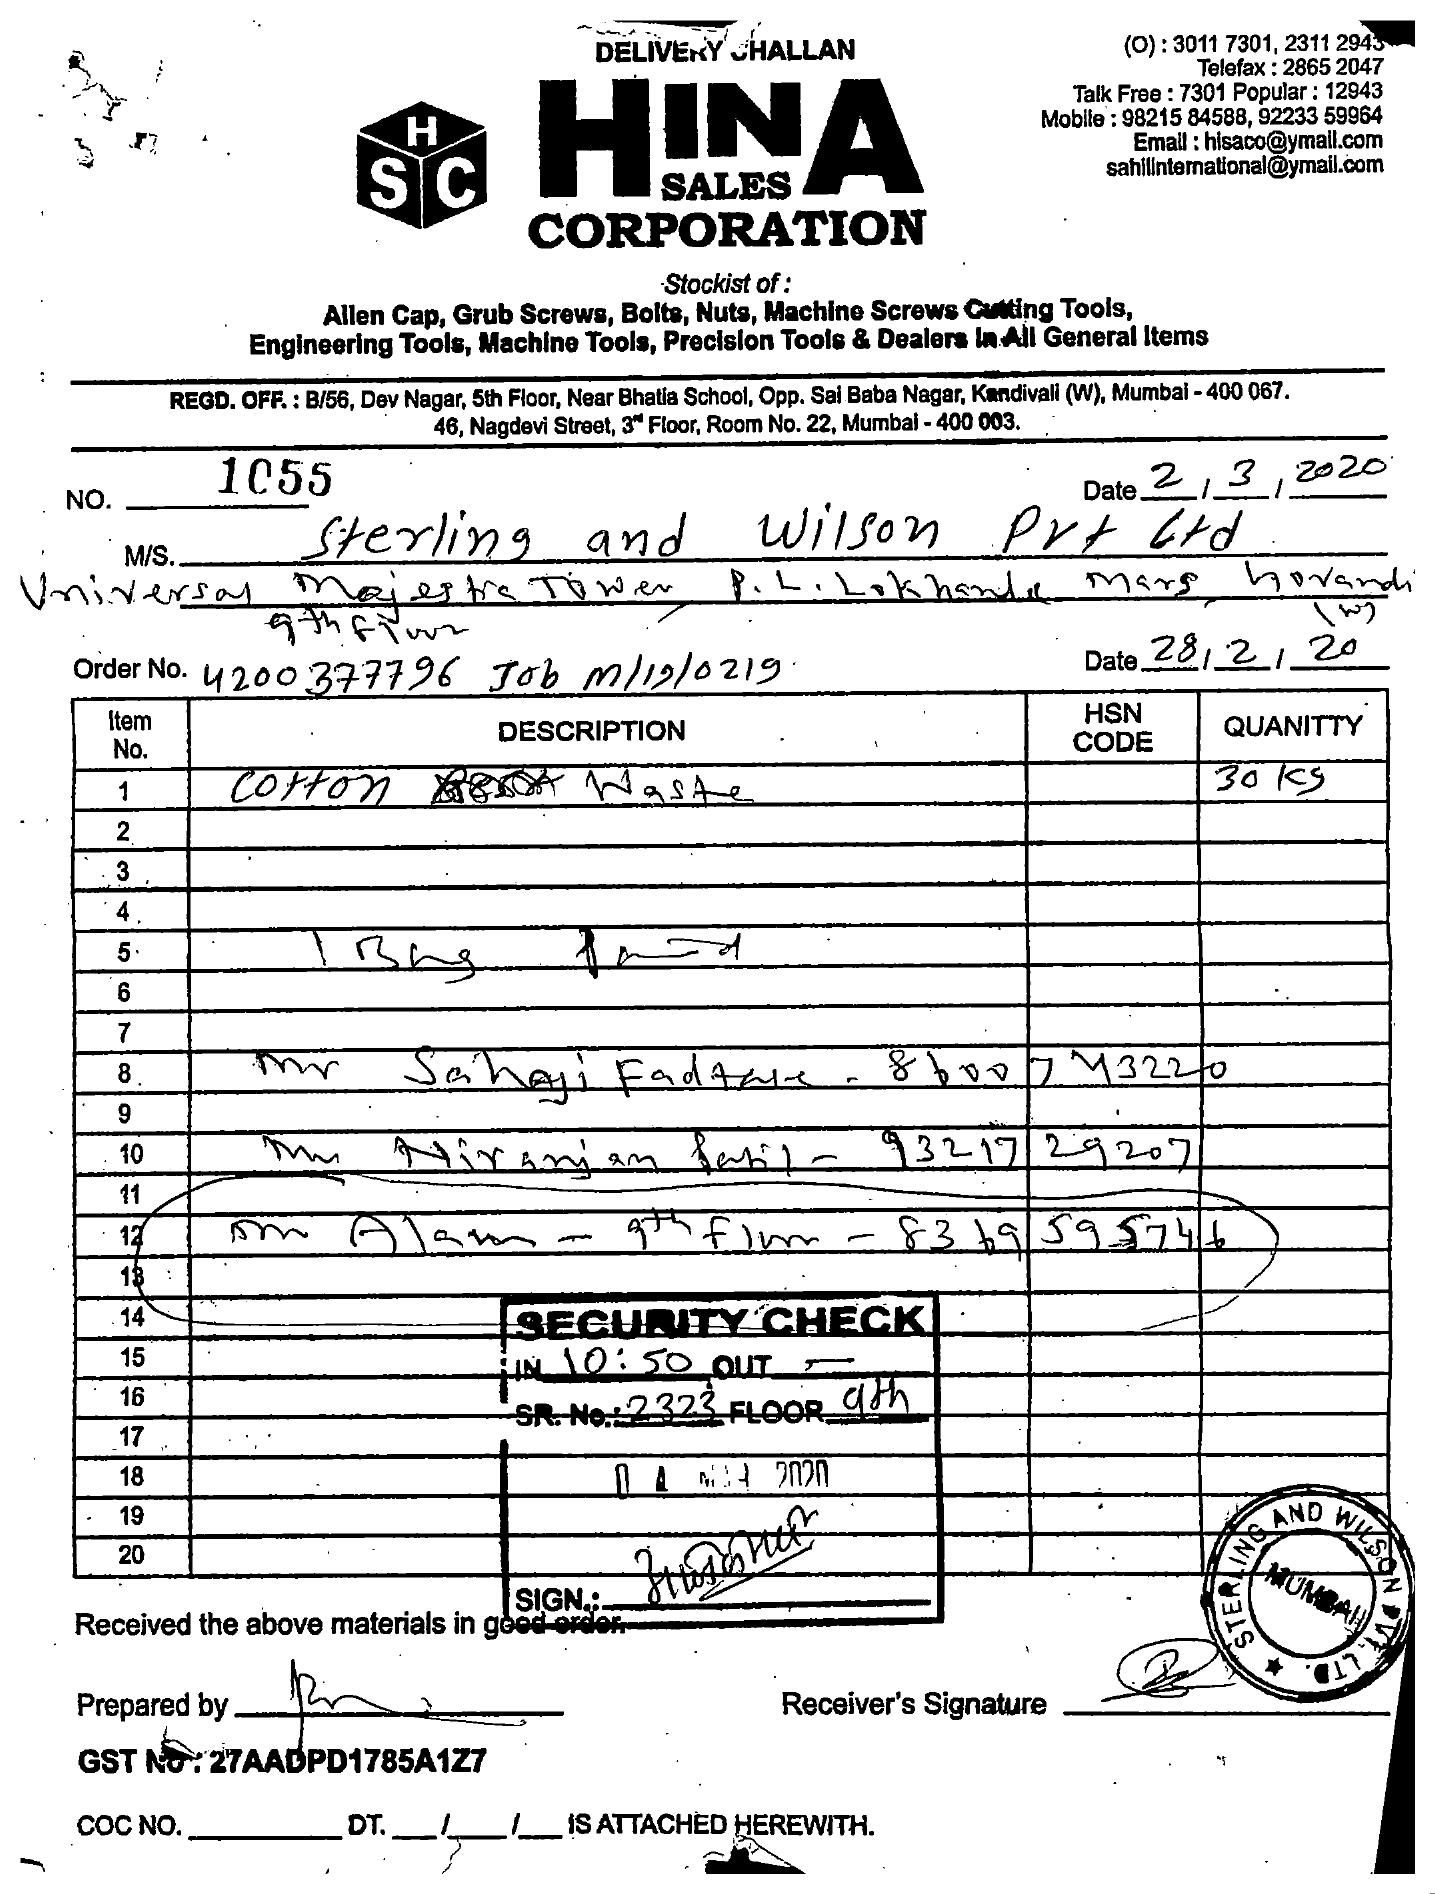 DELIVERY CHALLAN
(O) : 3011 7301, 2311 2943
Telefax : 2865 2047
Talk Free : 7301 Popular : 12943
Mobile : 98215 84588, 92233 59964
Email : hisaco@ymail.com
sahilinternational@ymail.com
H
S C
HINA
SALES
CORPORATION
Stockist of :
Allen Cap, Grub Screws, Bolts, Nuts, Machine Screws Cutting Tools,
Engineering Tools, Machine Tools, Precision Tools & Dealers in All General Items
REGD. OFF. : B/56, Dev Nagar, 5th Floor, Near Bhatia School, Opp. Sai Baba Nagar, Kandivali (W), Mumbai - 400 067.
46, Nagdevi Street, 3rd Floor, Room No. 22, Mumbai - 400 003.
NO. 1055 Date 2/3/2020
M/S. Sterling and Wilson Pvt Ltd
Universal Majestra Tower, P. L. Lokhande Marg, Govandi
(W)
9th Floor
Order No. 4200377796 Job M/19/0219 Date 28/2/20
Item No. DESCRIPTION HSN CODE QUANITTY
1 Cotton Waste 30 KG
2
3
4
5 1 Bag
6
7
8 Mr Fadtare - 8600743220
9
10 Mr Niranjan Patil - 9321729207
11
12 Mr Alam - 9th Floor - 8369595746
13
14 SECURITY CHECK
15 IN 10:50 OUT —
16 SR. No.: 2323 FLOOR 9th
17
18 2020
19
20
SIGN.:
STERLING AND WILSON PVT. LTD. ★
MUMBAI
Received the above materials in good order.
Prepared by Receiver's Signature
GST No : 27AADPD1785A1Z7
COC NO. DT. / / IS ATTACHED HEREWITH.